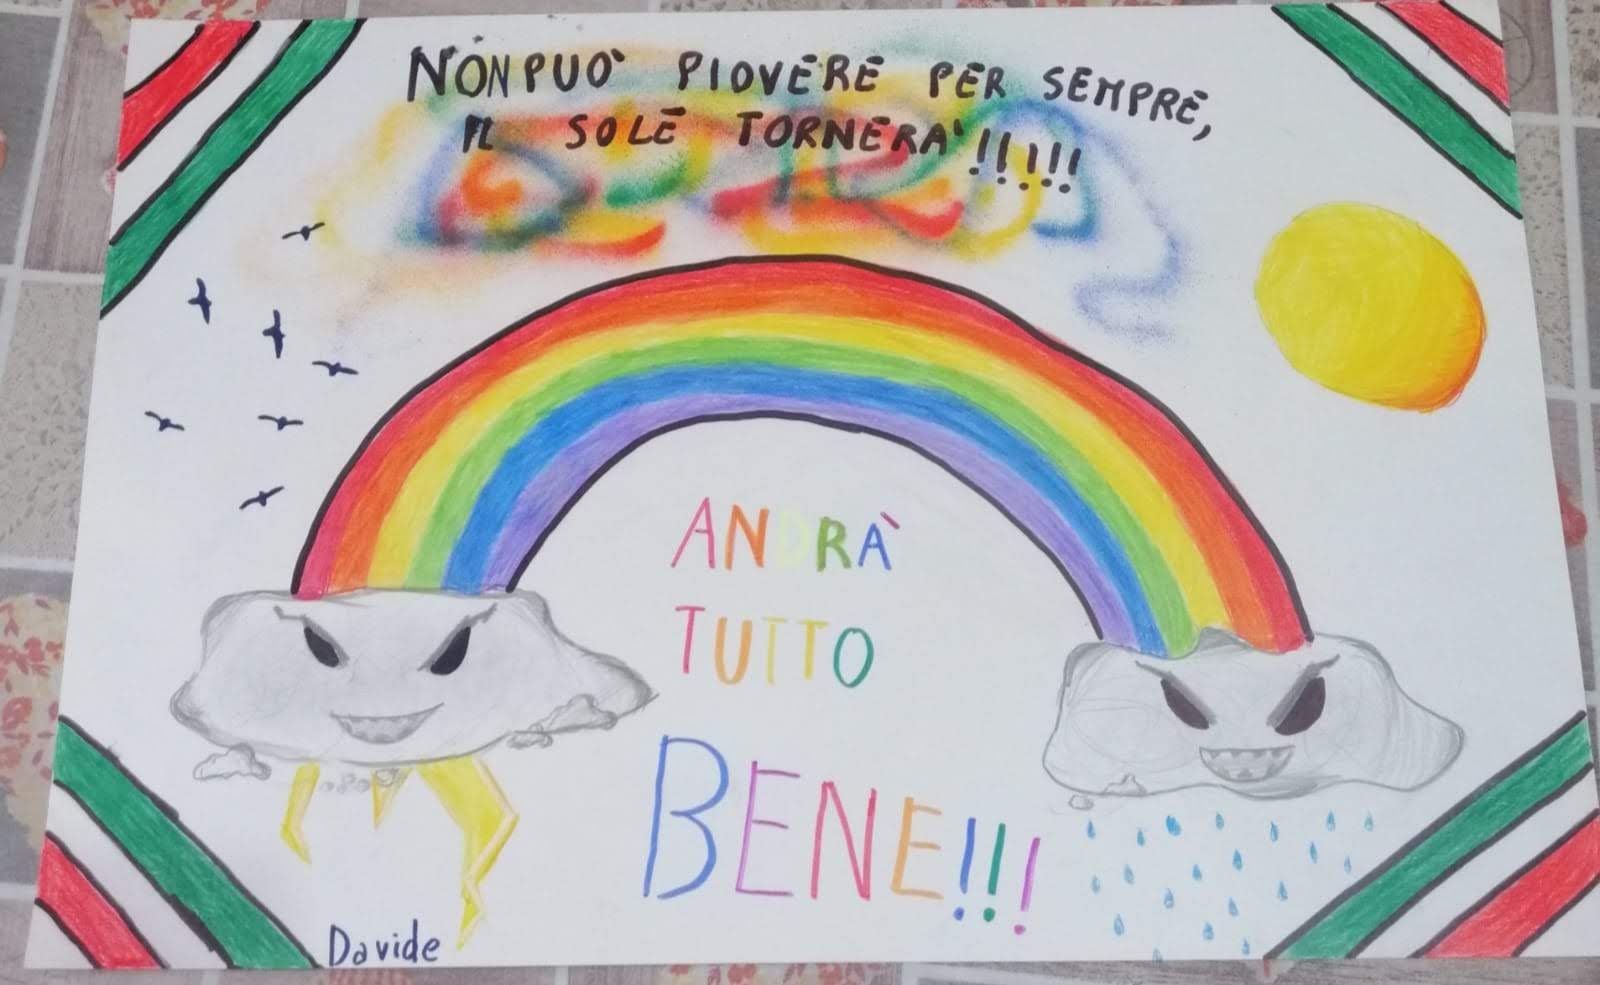 NON PUO' PIOVERE PER SEMPRE,
IL SOLE TORNERA'!!!!!!
ANDRÀ
TUTTO
BENE!!!
Davide